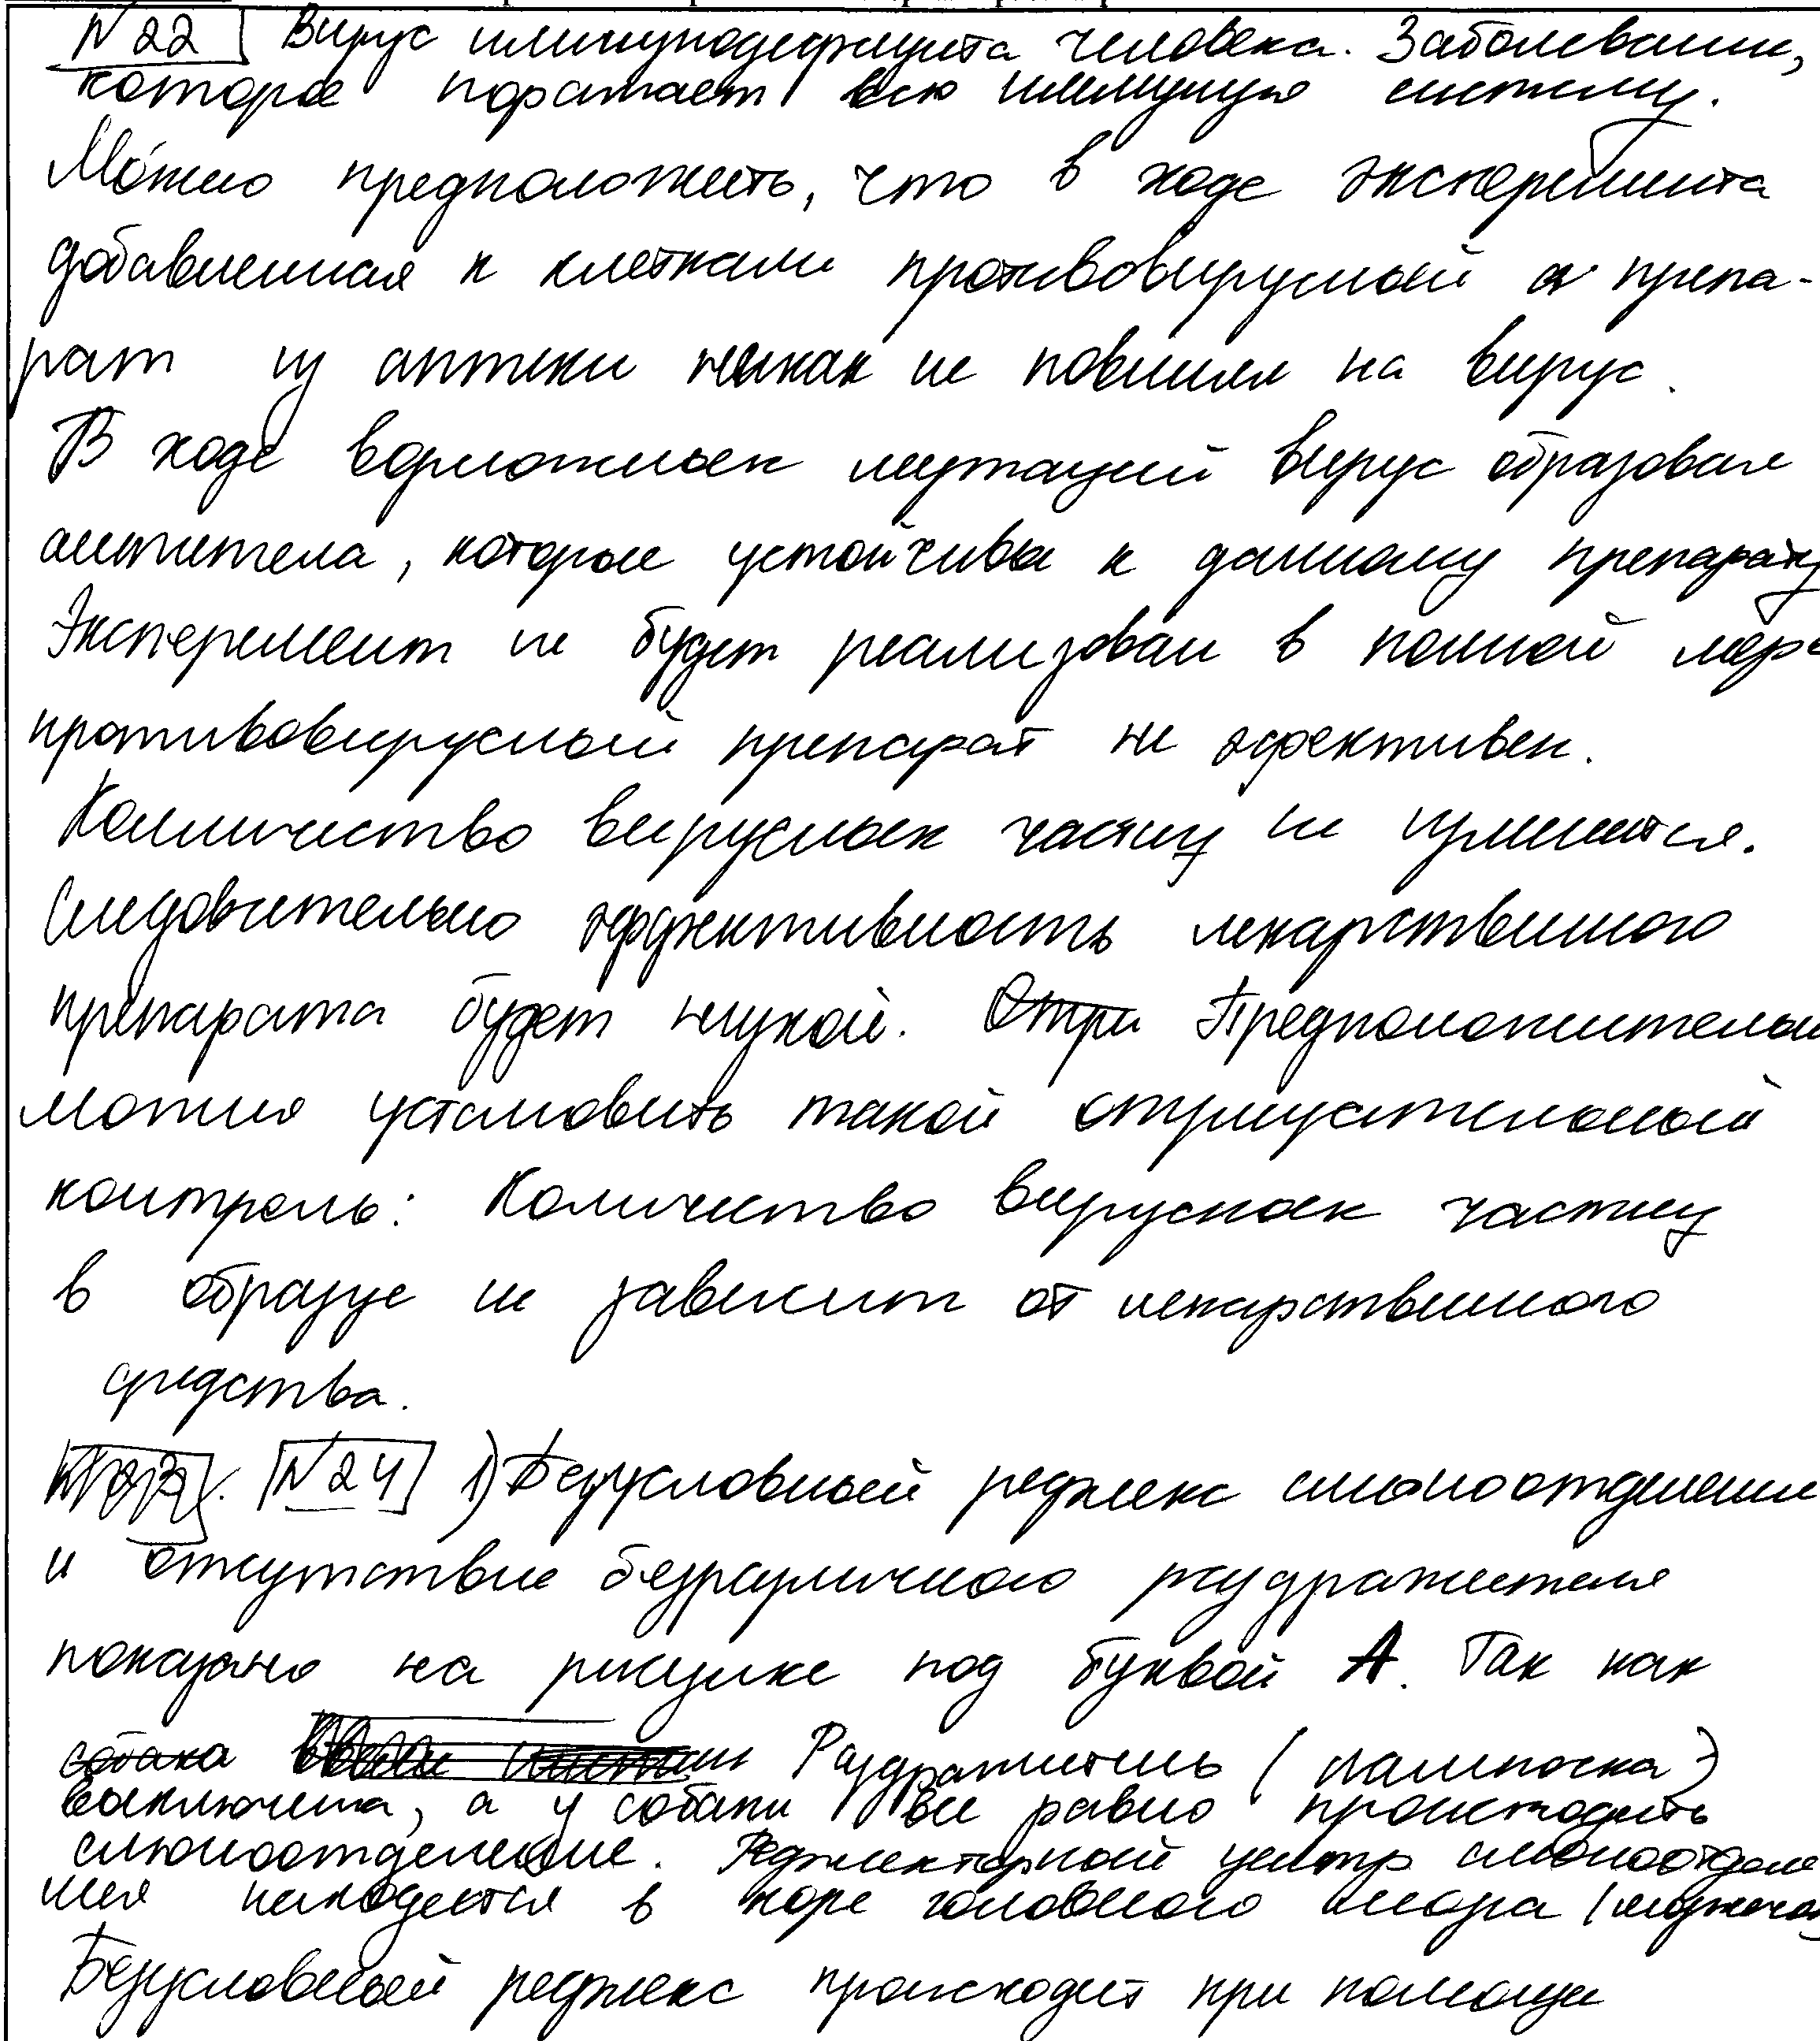 №22 Вирус иммунодефицита человека. Заболевание,
которое поражает всю иммуную систему.
Можно предположить, что в ходе эксперемента
добавленная к клеткам противовирусный препа-
рат из аптеки никак не повлиял на вирус.
В ходе возможных мутаций вирус образовал
антитела, которые устойчивы к данному препарату
Эксперемент не будет реализован в полной мере
противовирусный препарат не эфективен.
Колличество вирусных частиц не изменится.
Следовательно эффективность лекарственного
препарата будет низкой. Предположительно
можно установить такой отрицательный
контроль: Количество вирусных частиц
в образце не зависит от лекарственного
средства.
№24 1) Безусловный рефлекс слюноотделения
и отсутствие безразличного раздражителя
показано на рисунке под буквой А. Так как
Раздражитель (лампочка)
выключена, а у собаки все равно происходить
слюноотделение. Рефлекторный центр слюноотделе
ния находится в коре головного мозга
Безусловный рефлекс происходит при помощи